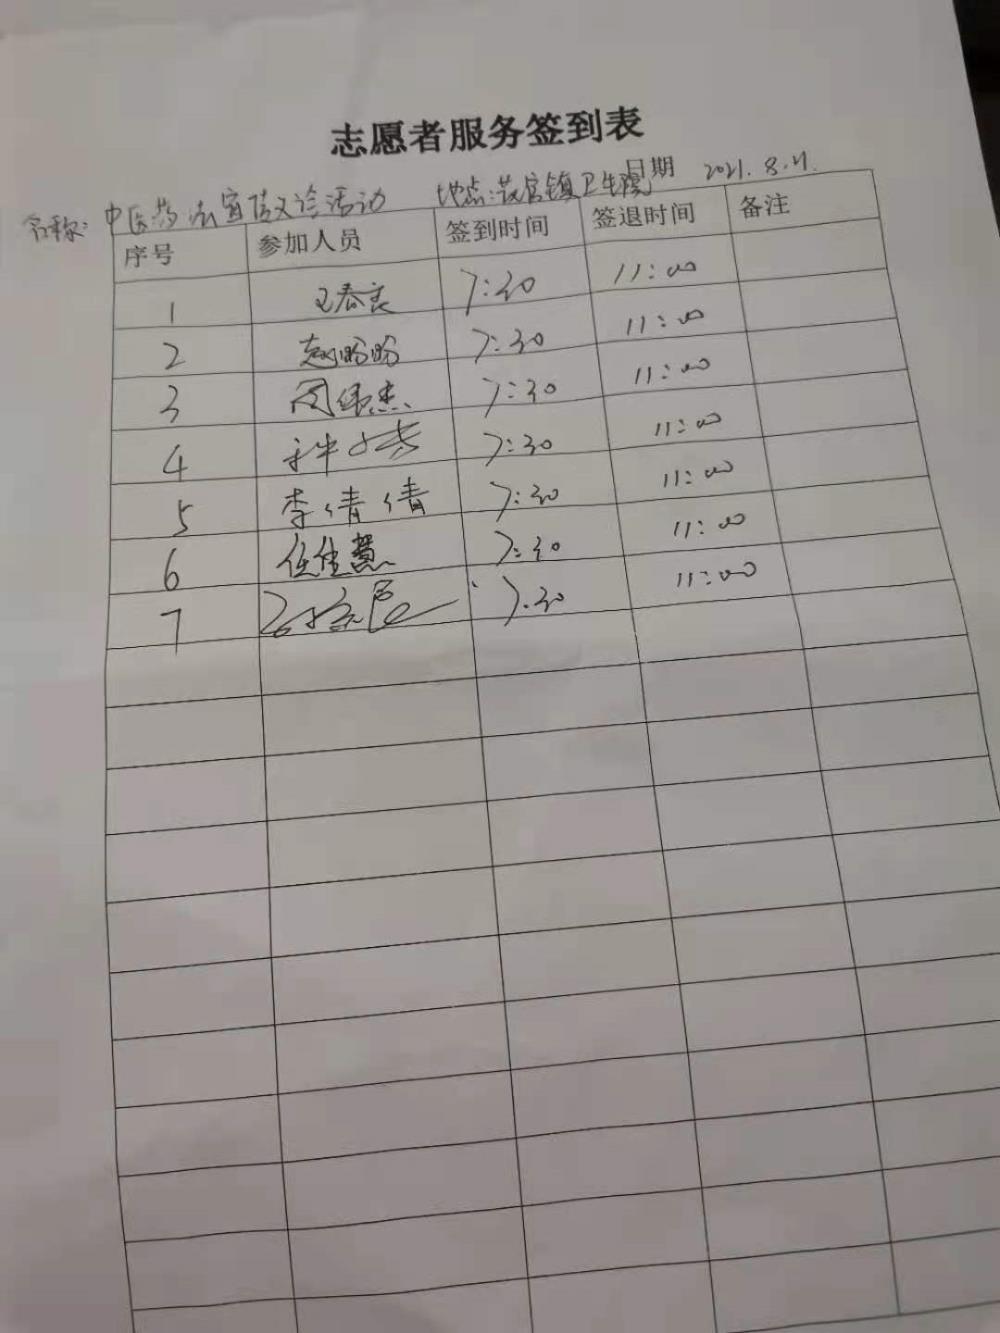 志愿者服务签到表
名称:中医药法宣传义诊活动 地点:官镇卫生院 日期 2021.8.21.
序号 参加人员 签到时间 签退时间 备注
1 王春良 7:30 11:00
2 赵盼盼 7:30 11:00
3 闫伟杰 7:30 11:00
4 7:30 11:00
5 李倩倩 7:30 11:00
6 任佳慧 7:30 11:00
7 7.30 11:00